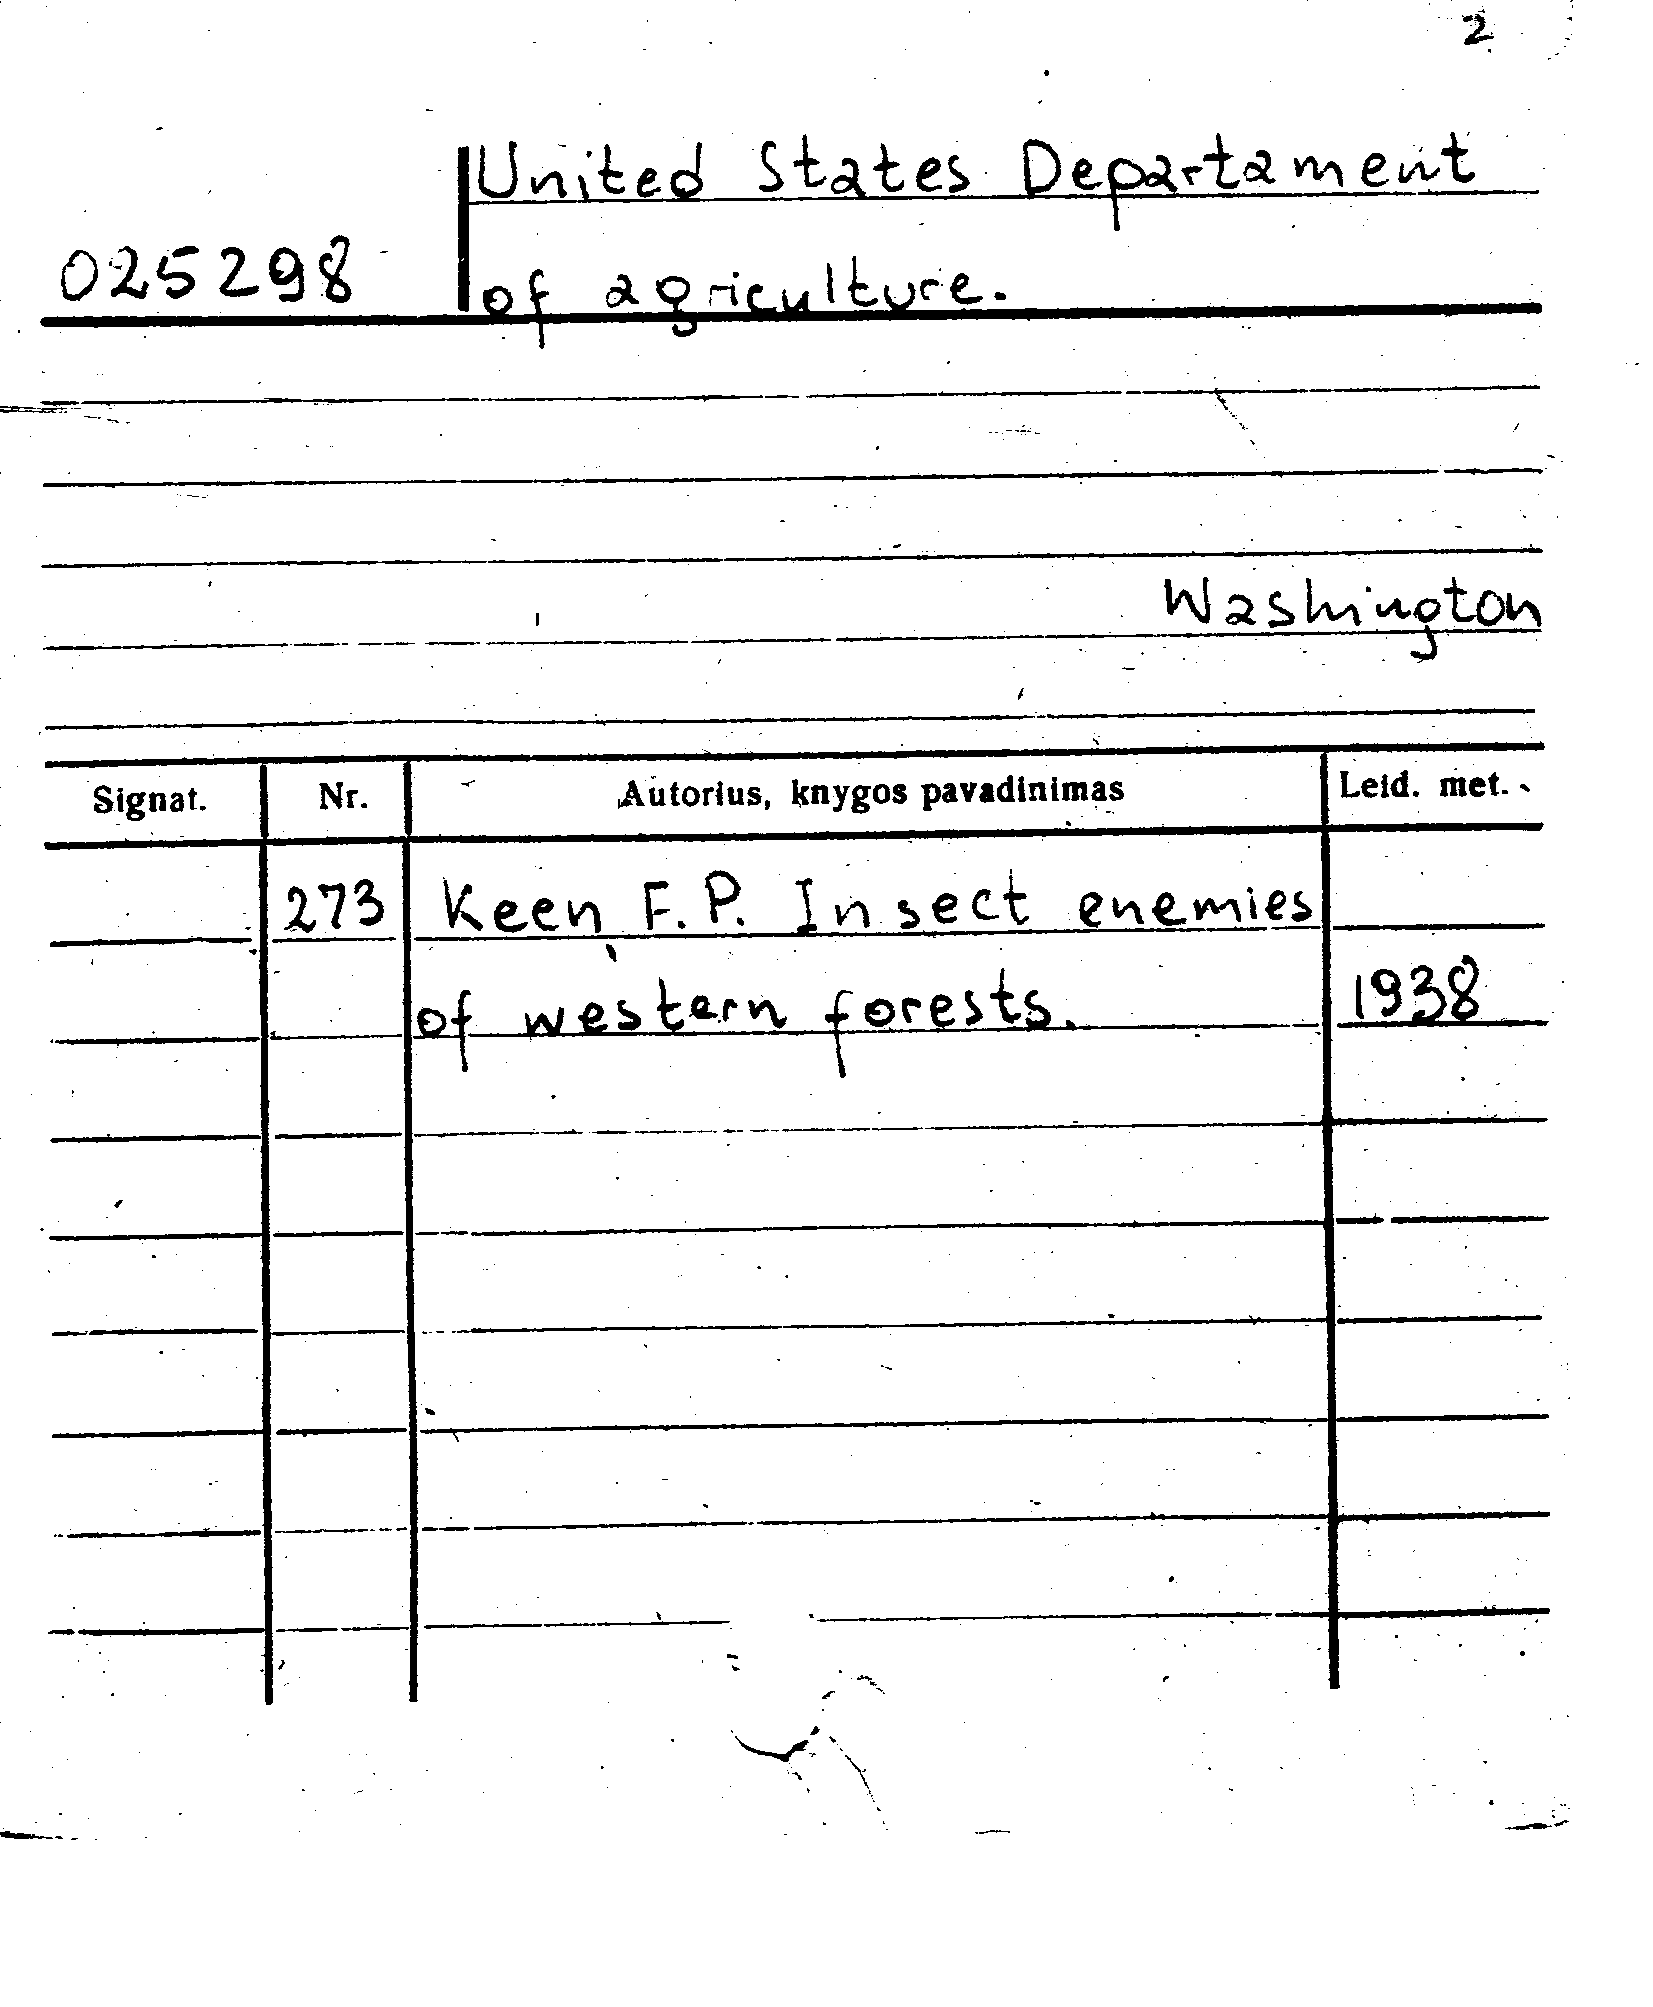 2
United States Departament
025298 of agriculture.
Washington
Signat. Nr. Autorius, knygos pavadinimas Leid. met.
273 Keen, F.P. Insect enemies
of western forests. 1938